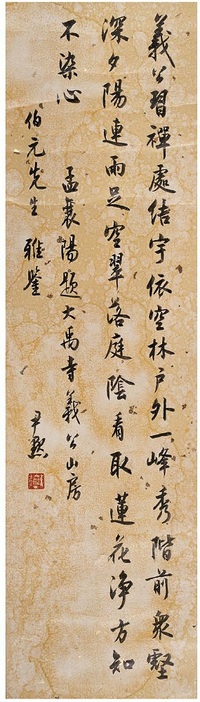 義公習禪處結宇依空林戶外一峰秀階前衆壑
深夕陽連雨足空翠落庭陰看取蓮花淨方知
不染心 孟襄陽題大禹寺義公山房
伯元先生 雅鑒 尹默